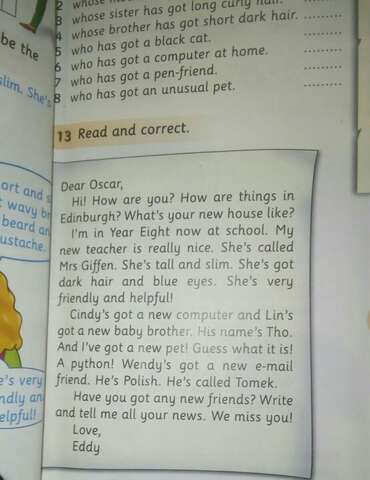 2 whose
3 whose sister has got long curly hair.
4 whose brother has got short dark hair. .........
5 who has got a black cat. .........
6 who has got a computer at home. .........
7 who has got a pen-friend. .........
8 who has got an unusual pet. .........
be the
slim. She's
13 Read and correct.
Dear Oscar,
Hi! How are you? How are things in
Edinburgh? What's your new house like?
I'm in Year Eight now at school. My
new teacher is really nice. She's called
Mrs Giffen. She's tall and slim. She's got
dark hair and blue eyes. She's very
friendly and helpful!
Cindy's got a new computer and Lin's
got a new baby brother. His name's Tho.
And I've got a new pet! Guess what it is!
A python! Wendy's got a new e-mail
friend. He's Polish. He's called Tomek.
Have you got any new friends? Write
and tell me all your news. We miss you!
Love,
Eddy
ort and
wavy
beard
ustache.
e's very
ndly
elpful!